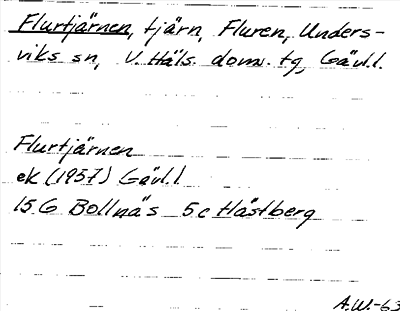 Flurtjärnen, tjärn, Fluren, Unders-
viks sn, V. Häls. doms. tg, Gävl.l.
Flurtjärnen
ek (1957) Gävl.l
15 G Bollnäs 5 c Hästberg
A.W.-63